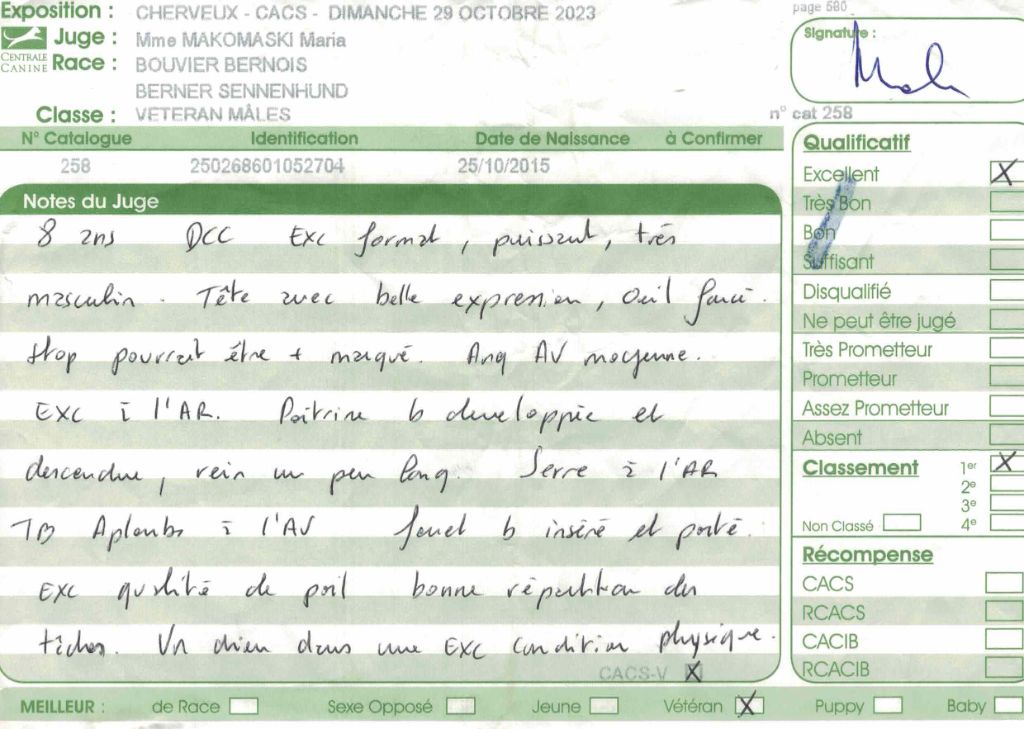 Exposition : CHERVEUX - CACS - DIMANCHE 29 OCTOBRE 2023
page 580
Juge : Mme MAKOMASKI Maria
CENTRALE CANINE
Race : BOUVIER BERNOIS
BERNER SENNENHUND
Classe : VETERAN MÂLES
Signature :
n° cat 258
N° Catalogue Identification Date de Naissance à Confirmer
258 250268601052704 25/10/2015
Notes du Juge
8 ans DCC Exc format, puissant, très
masculin. Tête avec belle expression, Oeil foncé.
Stop pourrait être + marqué. Ang AV moyenne.
Exc à l'AR. Poitrine b developpée et
descendue, rein un peu long. Serre à l'AR
TB Aplombs à l'AV fouet b inséré et porté.
Exc qualité de poil bonne répartition des
tâches. Un chien dans une Exc condition physique.
CACS-V X
Qualificatif
Excellent X
Très Bon
Bon
Suffisant
Disqualifié
Ne peut être jugé
Très Prometteur
Prometteur
Assez Prometteur
Absent
Classement 1er X
2e
3e
Non Classé 4e
Récompense
CACS
RCACS
CACIB
RCACIB
MEILLEUR : de Race Sexe Opposé Jeune Vétéran X Puppy Baby